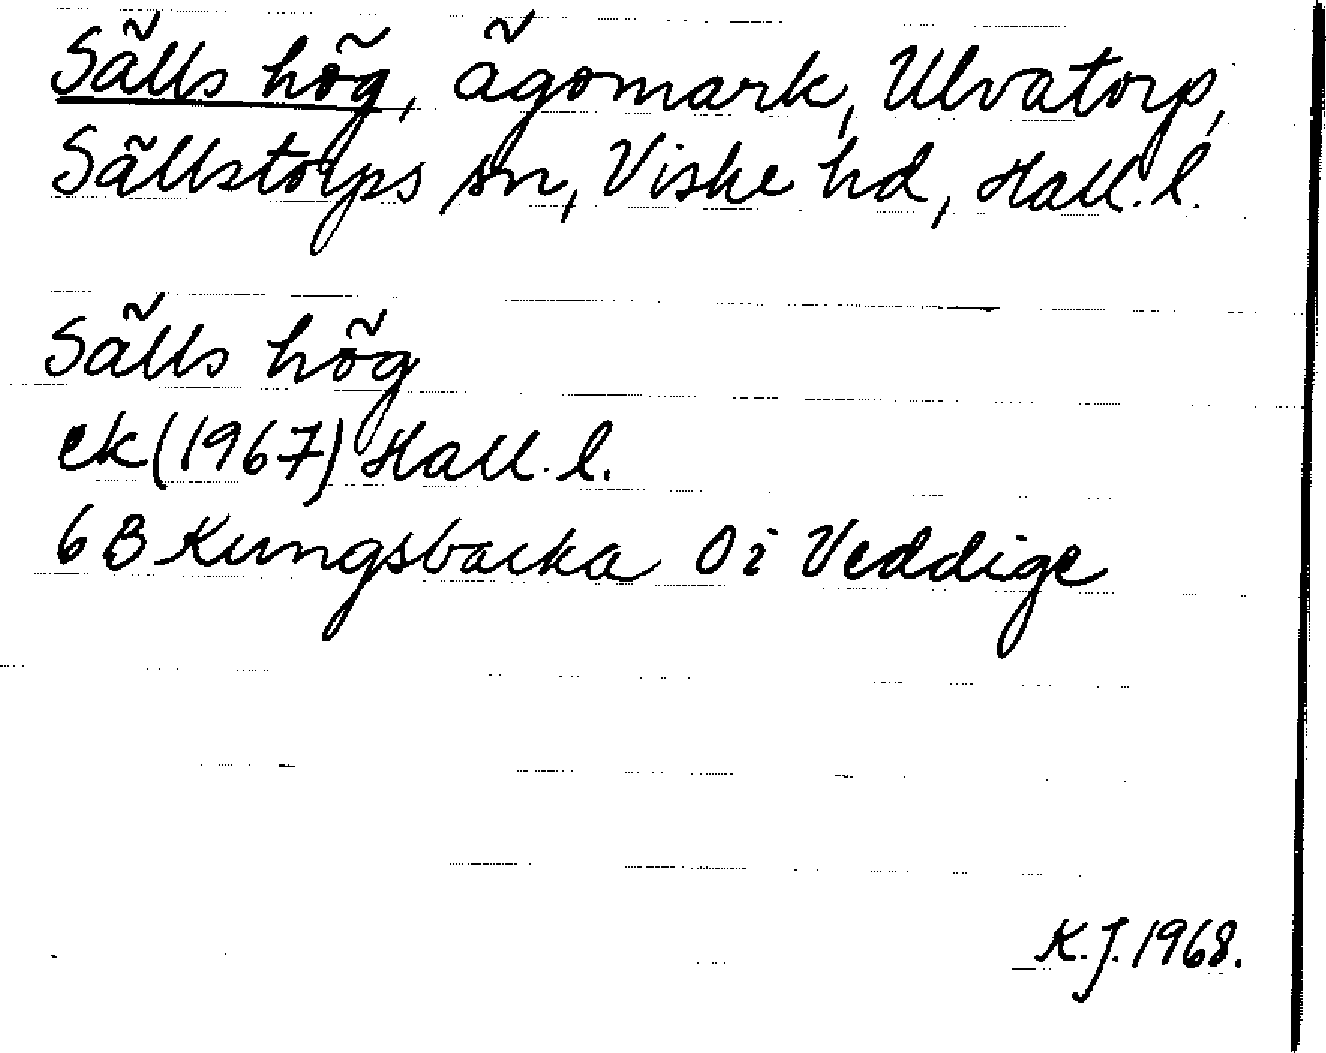 Sälls hög, ägomark, Ulvatorp,
Sällstorps sn, Viske hd, Hall. l.
Sälls hög
ek (1967) Hall. l.
6 B Kungsbacka 0 i Veddige
K. J. 1968.